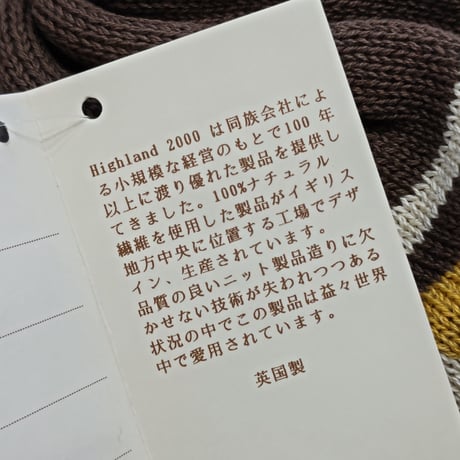 Highland 2000 は同族会社によ
る小規模な経営のもとで100 年
以上に渡り優れた製品を提供し
てきました。100%ナチュラル
繊維を使用した製品がイギリス
地方中央に位置する工場でデザ
イン、生産されています。
品質の良いニット製品造りに欠
かせない技術が失われつつある
状況の中でこの製品は益々世界
中で愛用されています。
英国製